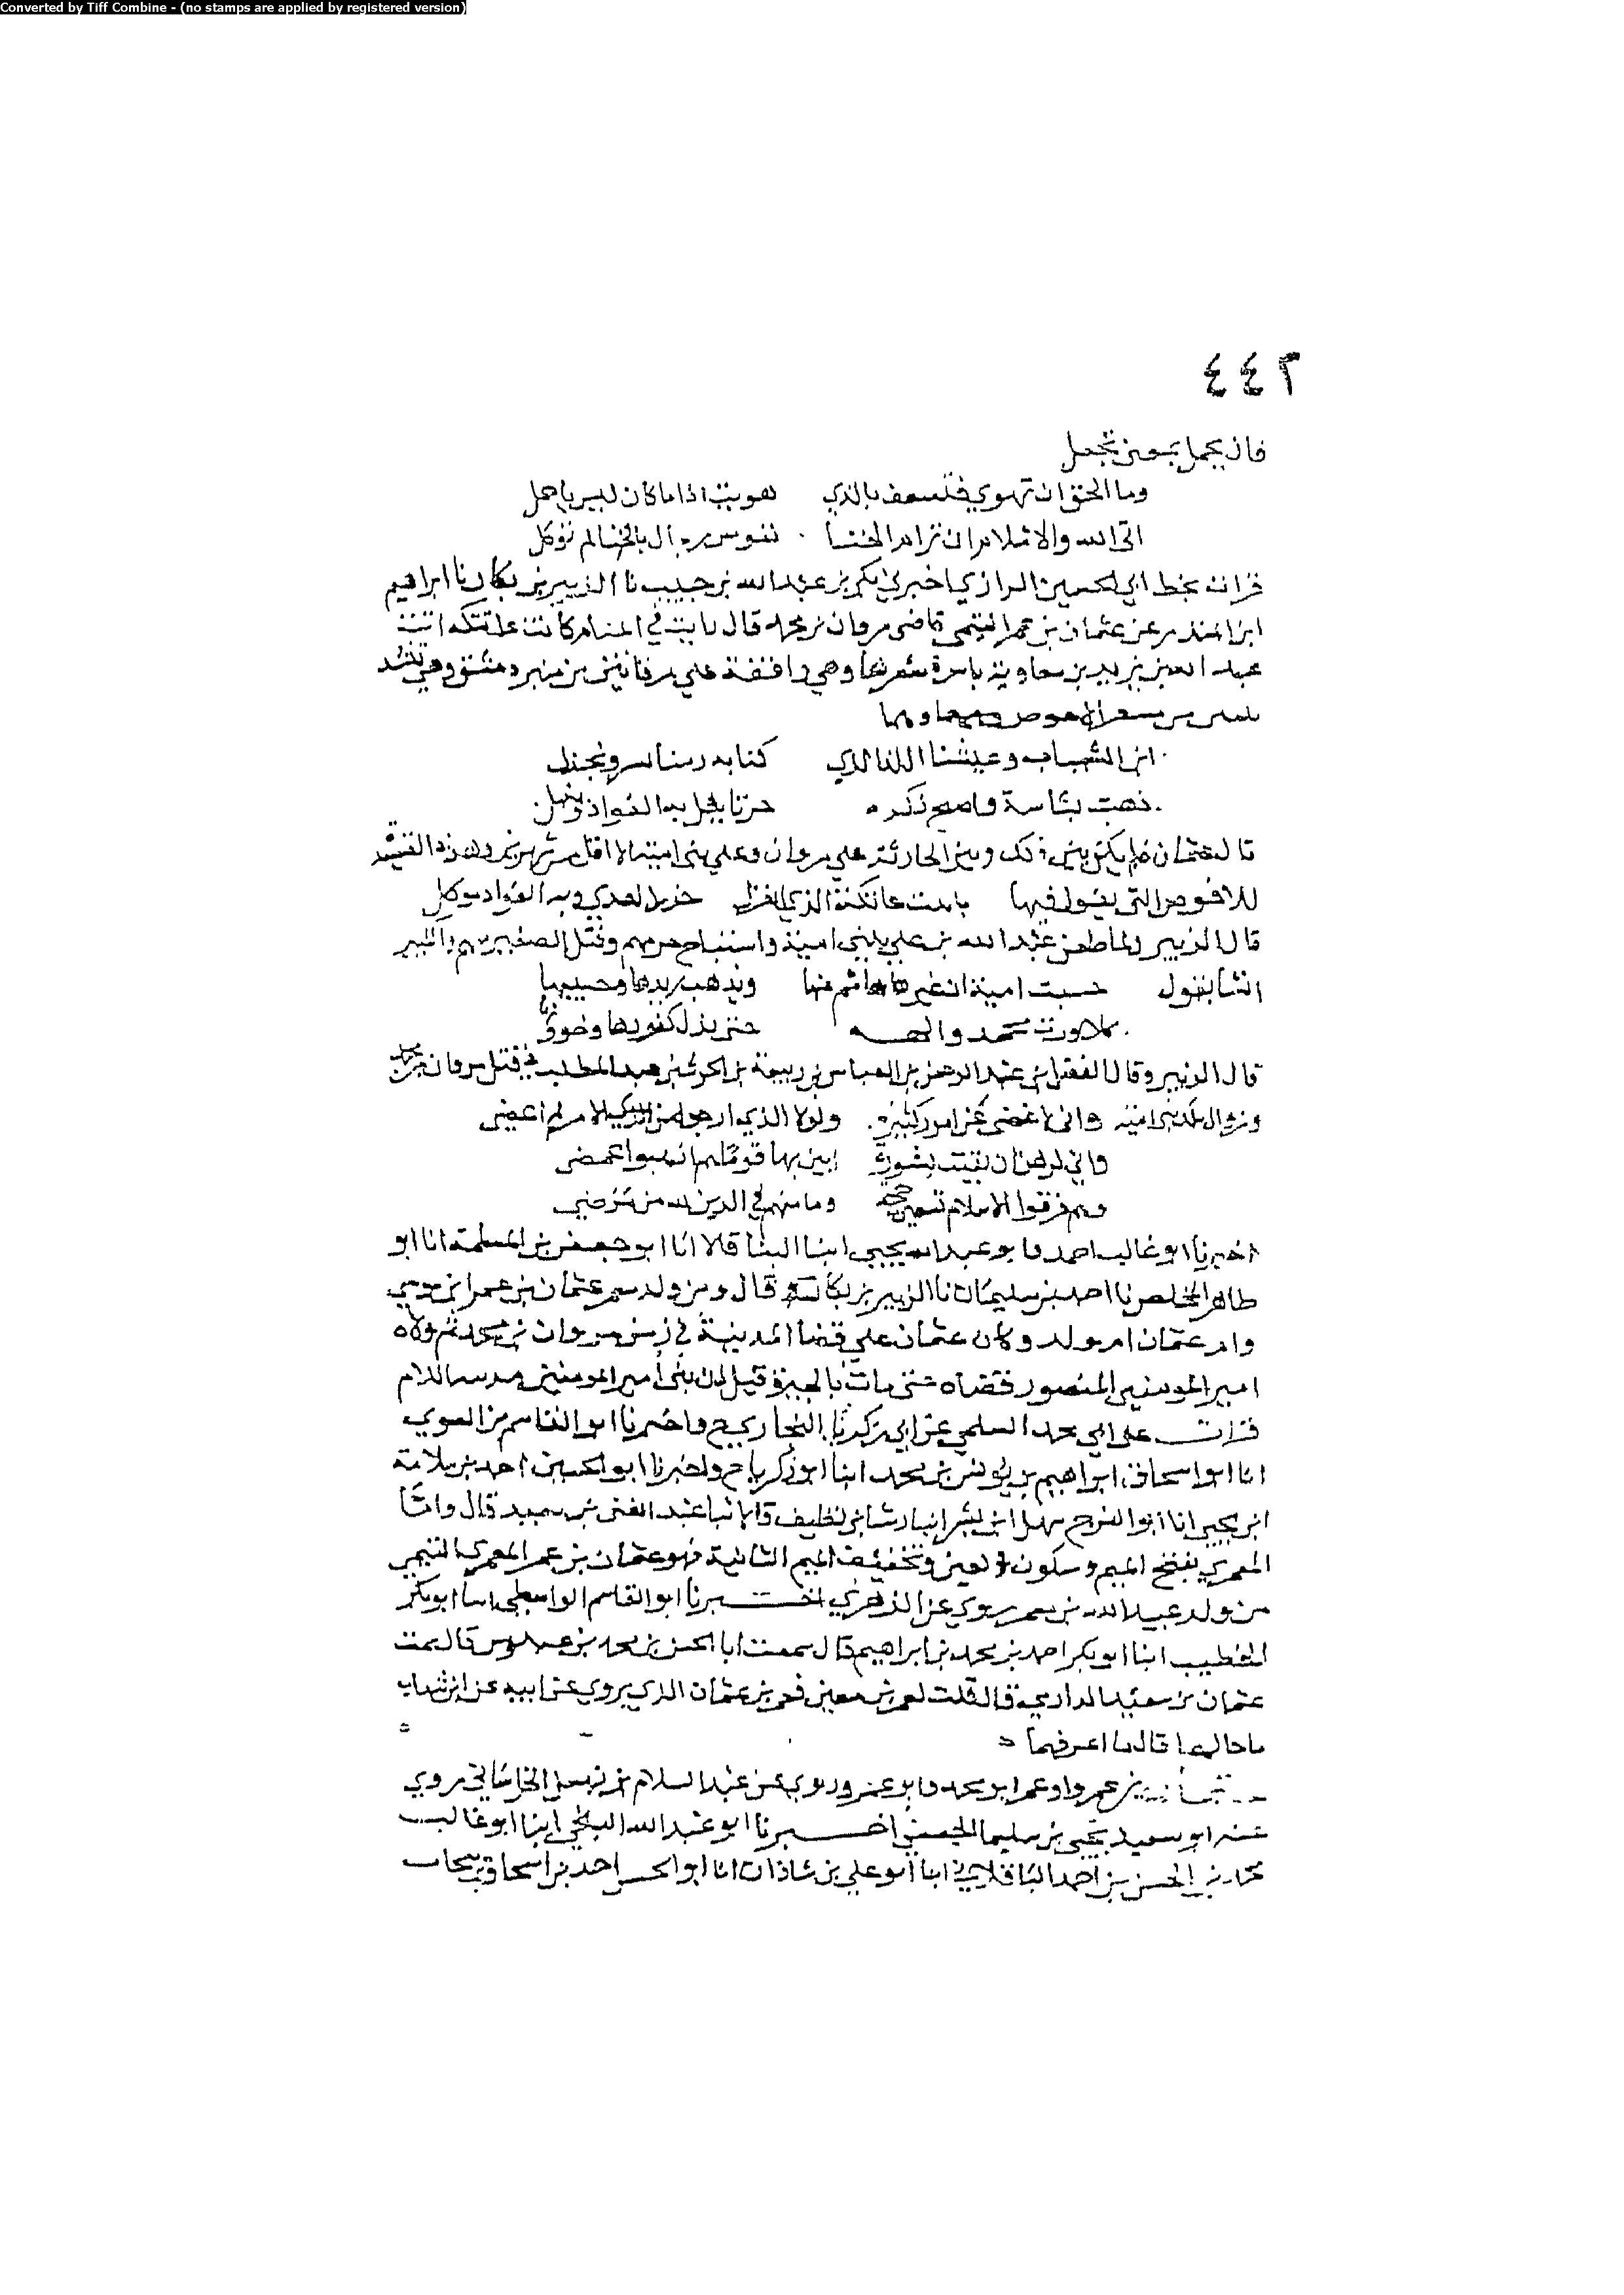 Converted by Tiff Combine - (no stamps are applied by registered version)
٤٤٢
وما الحق ان تهوي فتسعف بالذي هويت اذا ما كان ليس باجمل
ابى الله والاسلام ان ترام الخنا نفوس رجال بالخنا لم توكل
قرات بخط ابي الحسين الرازي اخبرني بكر بن عبد الله بن حبيب نا الزبير بن بكار نا ابراهيم
ابن المنذر عن عثمان بن عمر التيمي قاضي مروان بن محمد قال رايت في المنام كانت عاتكة ابنة
عبد الله بن يزيد بن معاوية ناشرة شعرها وهي واقفة على مرقاتين من منبر دمشق وهي تنشد
بيتين من شعر الاحوص وهما
اين الشباب وعيشنا اللذ الذي كنا به زمنا نسر ونجذل
ذهبت بشاشته واصبح ذكره حزنا يعل به الفواد وينهل
قال عثمان فلم يكن بين ذلك وبين الحادثة على مروان وعلى بني امية الا اقل من شهرين وهذه القصيدة
للاحوص التي يقول فيها يا بيت عاتكة الذي اتعزل حذر العدى وبه الفواد موكل
قال الزبير ولما طعن عبد الله بن علي بني امية واستباح حرمهم وقتل الصغير منهم والكبير
انشا يقول حسبت امية ان غيرها هاشم عنها ويذهب زيدها وحسينها
كلا ورب محمد والهه حتى يذل كفورها وخوونها
قال الزبير وقال الفضل بن عبد الرحمن بن العباس بن ربيعة بن الحرث بن عبد المطلب في قتل مروان بن محمد
وزوال ملك بني امية واني لاغضي عن امور كثيرة ولولا الذي ارجو من الملك لم اغض
وهم فرقوا الاسلام تسعين وما منهم في الدين لله من مرضي
اخبرنا ابو غالب احمد وابو عبد الله يحيى ابنا البنا قالا انا ابو جعفر بن المسلمة انا ابو
طاهر المخلص نا احمد بن سليمان نا الزبير بن بكار قال ومن ولد عمر عثمان بن عمر ابن موسى
وام عثمان ام ولد وكان عثمان على قضا المدينة في زمن مروان بن محمد ثم ولاه
امير المومنين المنصور قضاه حتى مات بالحيرة قبل ان يبني امير المومنين مدينة السلام
قرات على ابي محمد السلمي عن ابي زكريا البخاري ح واخبرنا ابو القاسم بن السوسي
انا ابو اسحاق ابراهيم بن يونس بن محمد ابنا ابو زكريا ح واخبرنا ابو الحسين احمد بن سلامة
ابن يحيى انا ابو الفرج سهل ابن بشر انبا رشا بن نظيف قالا نبا عبد الغني بن سعيد قال واما
المعمري بفتح الميم وسكون العين وتخفيف الميم الثانية فهو عثمان بن عمر المعمري التيمي
من ولد عبيد الله بن معمر يروي عن الزهري اخبرنا ابو القاسم الواسطي انبا ابو بكر
الخطيب ابنا ابو بكر احمد بن محمد بن ابراهيم قال سمعت ابا الحسن بن محمد بن عبدوس قال سمعت
عثمان بن سعيد الدارمي قال قلت ليحيى بن معين فعمر بن عثمان الذي يروي عن ابيه عن ابن شهاب
ما حالهما قال ما اعرفهما
بن عمرو او عمر ابو محمد وابو عمرو روى عن عبد السلام بن الخراساني روى
عنه ابو سعيد يحيى بن سليمان الجعفي اخبرنا ابو عبد الله البلخي ابنا ابو غالب
محمد بن الحسن بن احمد الباقلاني ابنا ابو علي بن شاذان انا ابو الحسن احمد بن اسحاق بن نيخاب